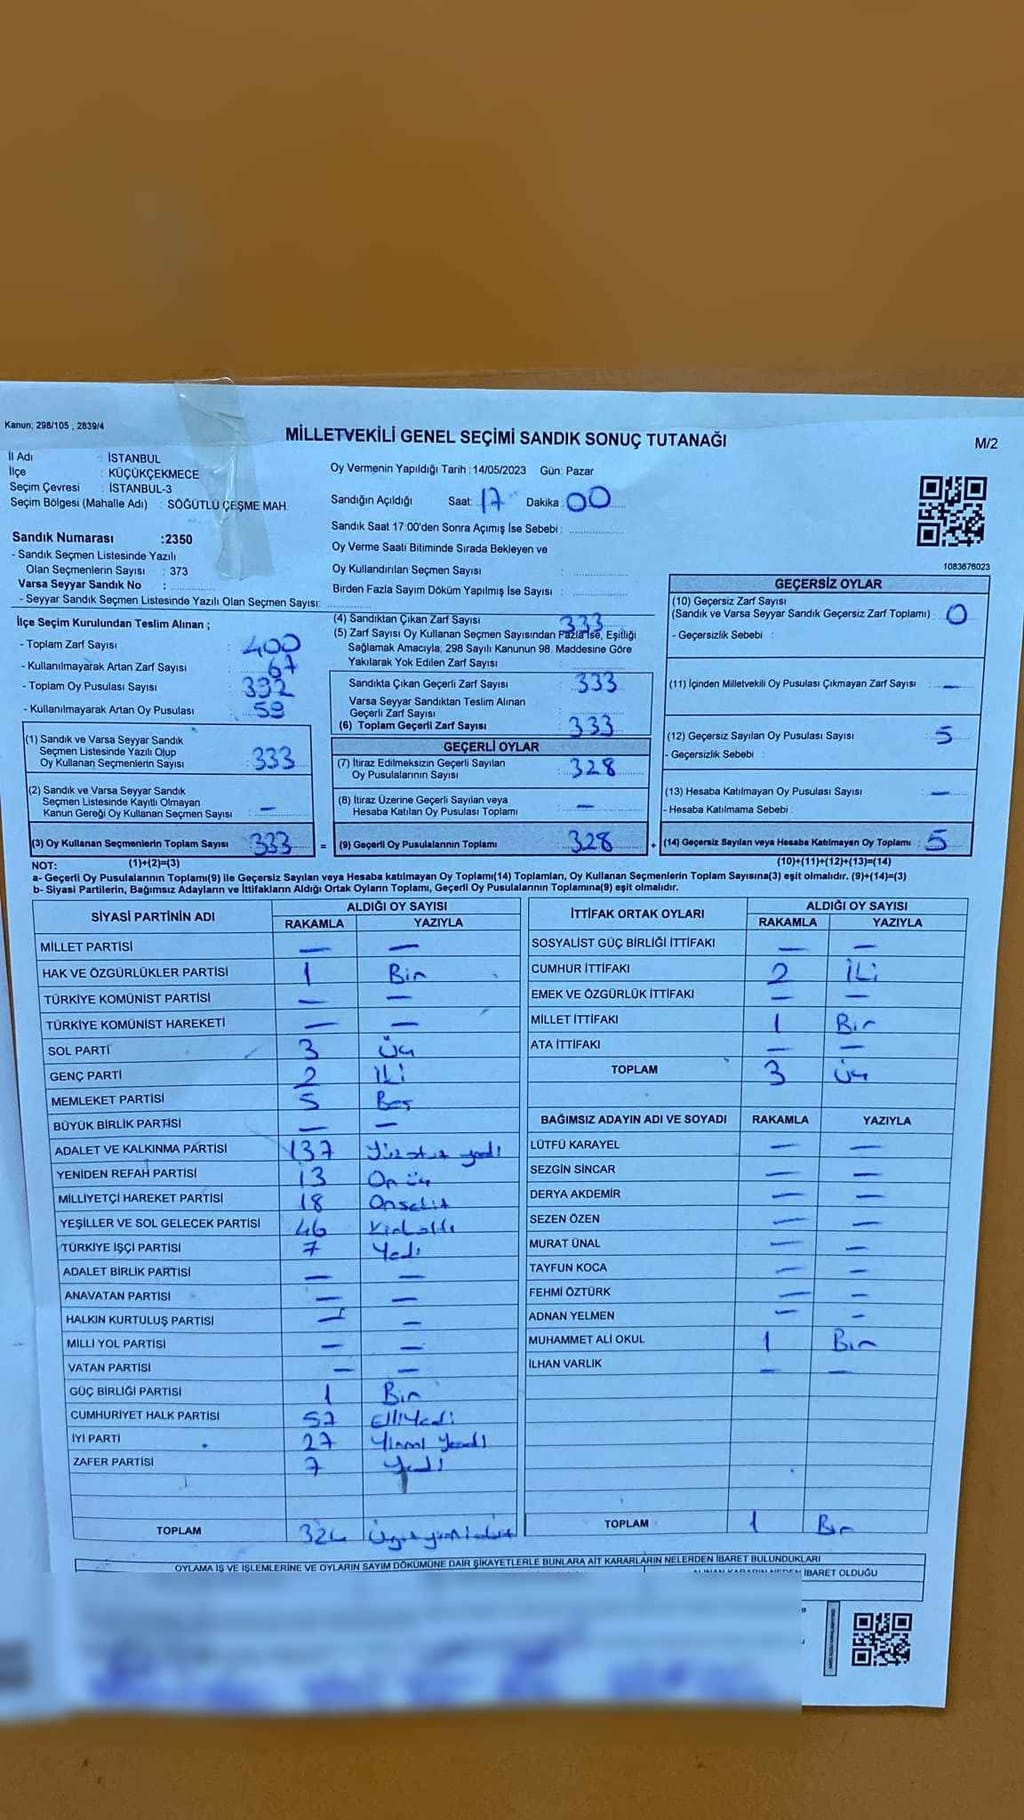 Kanun: 298/105 , 2839/4
MİLLETVEKİLİ GENEL SEÇİMİ SANDIK SONUÇ TUTANAĞI
M/2
İl Adı : İSTANBUL
İlçe : KÜÇÜKÇEKMECE
Seçim Çevresi : İSTANBUL-3
Seçim Bölgesi (Mahalle Adı) : SÖĞÜTLÜ ÇEŞME MAH.
Sandık Numarası :2350
- Sandık Seçmen Listesinde Yazılı
Olan Seçmenlerin Sayısı : 373
Varsa Seyyar Sandık No :
- Seyyar Sandık Seçmen Listesinde Yazılı Olan Seçmen Sayısı:
Oy Vermenin Yapıldığı Tarih : 14/05/2023 Gün: Pazar
Sandığın Açıldığı Saat: 17 Dakika: 00
Sandık Saat 17:00'den Sonra Açımış İse Sebebi :
Oy Verme Saati Bitiminde Sırada Bekleyen ve
Oy Kullandırılan Seçmen Sayısı :
Birden Fazla Sayım Döküm Yapılmış İse Sayısı :
1083676023
İlçe Seçim Kurulundan Teslim Alınan ;
- Toplam Zarf Sayısı : 400
- Kullanılmayarak Artan Zarf Sayısı : 67
- Toplam Oy Pusulası Sayısı : 392
- Kullanılmayarak Artan Oy Pusulası : 59
(1) Sandık ve Varsa Seyyar Sandık
Seçmen Listesinde Yazılı Olup
Oy Kullanan Seçmenlerin Sayısı : 333
(2) Sandık ve Varsa Seyyar Sandık
Seçmen Listesinde Kayıtlı Olmayan
Kanun Gereği Oy Kullanan Seçmen Sayısı : —
(3) Oy Kullanan Seçmenlerin Toplam Sayısı : 333
(1)+(2)=(3)
(4) Sandıktan Çıkan Zarf Sayısı : 333
(5) Zarf Sayısı Oy Kullanan Seçmen Sayısından Fazla İse, Eşitliği
Sağlamak Amacıyla; 298 Sayılı Kanunun 98. Maddesine Göre
Yakılarak Yok Edilen Zarf Sayısı :
Sandıkta Çıkan Geçerli Zarf Sayısı : 333
Varsa Seyyar Sandıktan Teslim Alınan
Geçerli Zarf Sayısı :
(6) Toplam Geçerli Zarf Sayısı : 333
GEÇERLİ OYLAR
(7) İtiraz Edilmeksizin Geçerli Sayılan
Oy Pusulalarının Sayısı : 328
(8) İtiraz Üzerine Geçerli Sayılan veya
Hesaba Katılan Oy Pusulası Toplamı : —
= (9) Geçerli Oy Pusulalarının Toplamı : 328
GEÇERSİZ OYLAR
(10) Geçersiz Zarf Sayısı
(Sandık ve Varsa Seyyar Sandık Geçersiz Zarf Toplamı) : 0
- Geçersizlik Sebebi :
(11) İçinden Milletvekili Oy Pusulası Çıkmayan Zarf Sayısı : —
(12) Geçersiz Sayılan Oy Pusulası Sayısı : 5
- Geçersizlik Sebebi :
(13) Hesaba Katılmayan Oy Pusulası Sayısı : —
- Hesaba Katılmama Sebebi :
+ (14) Geçersiz Sayılan veya Hesaba Katılmayan Oy Toplamı : 5
(10)+(11)+(12)+(13)=(14)
NOT:
a- Geçerli Oy Pusulalarının Toplamı(9) ile Geçersiz Sayılan veya Hesaba katılmayan Oy Toplamı(14) Toplamları, Oy Kullanan Seçmenlerin Toplam Sayısına(3) eşit olmalıdır. (9)+(14)=(3)
b- Siyasi Partilerin, Bağımsız Adayların ve İttifakların Aldığı Ortak Oyların Toplamı, Geçerli Oy Pusulalarının Toplamına(9) eşit olmalıdır.
SİYASİ PARTİNİN ADI ALDIĞI OY SAYISI
RAKAMLA YAZIYLA
MİLLET PARTİSİ — —
HAK VE ÖZGÜRLÜKLER PARTİSİ 1 Bir
TÜRKİYE KOMÜNİST PARTİSİ — —
TÜRKİYE KOMÜNİST HAREKETİ — —
SOL PARTİ 3 Üç
GENÇ PARTİ 2 İki
MEMLEKET PARTİSİ 5 Beş
BÜYÜK BİRLİK PARTİSİ — —
ADALET VE KALKINMA PARTİSİ 137 Yüzotuz yedi
YENİDEN REFAH PARTİSİ 13 On üç
MİLLİYETÇİ HAREKET PARTİSİ 18 Onsekiz
YEŞİLLER VE SOL GELECEK PARTİSİ 46 Kırkaltı
TÜRKİYE İŞÇİ PARTİSİ 7 Yedi
ADALET BİRLİK PARTİSİ — —
ANAVATAN PARTİSİ — —
HALKIN KURTULUŞ PARTİSİ — —
MİLLİ YOL PARTİSİ — —
VATAN PARTİSİ — —
GÜÇ BİRLİĞİ PARTİSİ 1 Bir
CUMHURİYET HALK PARTİSİ 57 Elliyedi
İYİ PARTİ 27 Yirmi Yedi
ZAFER PARTİSİ 7 Yedi
TOPLAM 324 Üçyüzyirmidört
İTTİFAK ORTAK OYLARI ALDIĞI OY SAYISI
RAKAMLA YAZIYLA
SOSYALİST GÜÇ BİRLİĞİ İTTİFAKI — —
CUMHUR İTTİFAKI 2 İki
EMEK VE ÖZGÜRLÜK İTTİFAKI — —
MİLLET İTTİFAKI 1 Bir
ATA İTTİFAKI — —
TOPLAM 3 Üç
BAĞIMSIZ ADAYIN ADI VE SOYADI RAKAMLA YAZIYLA
LÜTFÜ KARAYEL — —
SEZGİN SİNCAR — —
DERYA AKDEMİR — —
SEZEN ÖZEN — —
MURAT ÜNAL — —
TAYFUN KOCA — —
FEHMİ ÖZTÜRK — —
ADNAN YELMEN — —
MUHAMMET ALİ OKUL 1 Bir
İLHAN VARLIK — —
TOPLAM 1 Bir
OYLAMA İŞ VE İŞLEMLERİNE VE OYLARIN SAYIM DÖKÜMÜNE DAİR ŞİKAYETLERLE BUNLARA AİT KARARLARIN NELERDEN İBARET BULUNDUKLARI
İBARET OLDUĞU